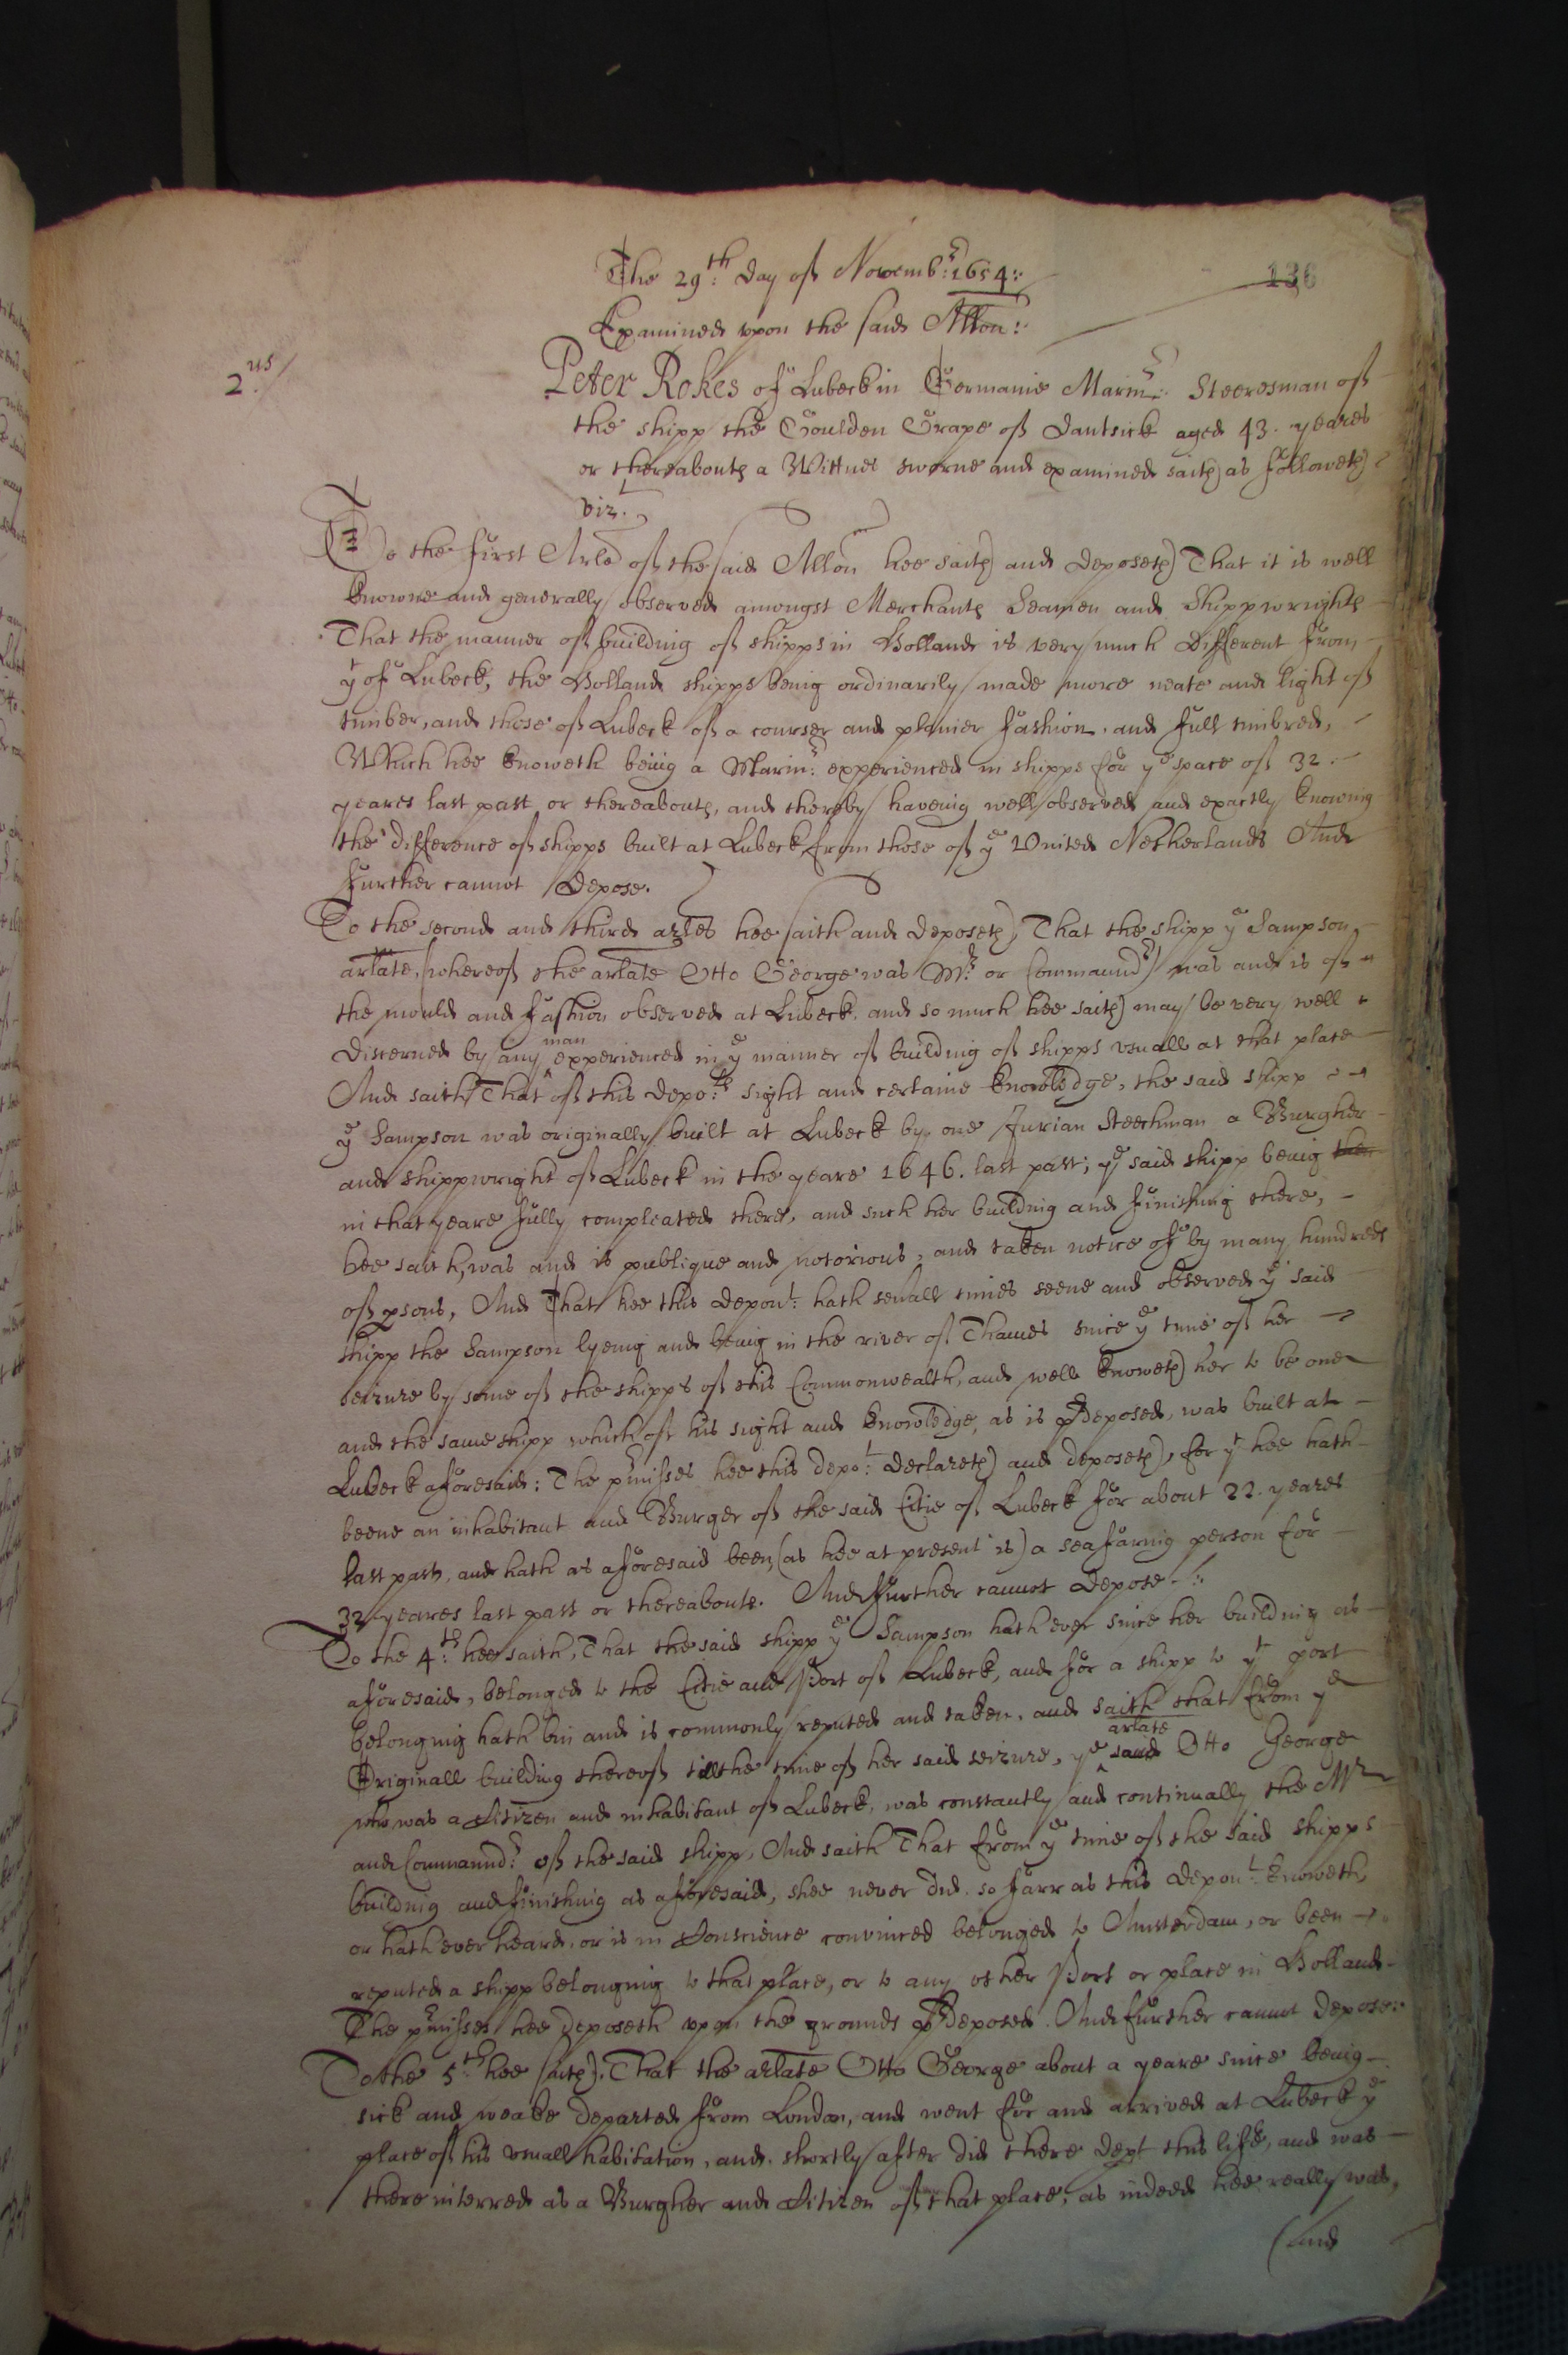 The 29th: day of Novemb:r 1654:
136
Examined upon the said Allon:
2us/
Peter Rokes of Lubeck in Germanie Marinr: Steeresman of
the shipp the Goulden Grape of Dantsick aged 43. yeares
or thereabouts a Wittnes sworne and examined saith as followeth
vizt.
To the first Arle of the said Allon hee saith and deposeth That it is well
knowne and generally observed amongst Merchants Seamen and Shippwrights
That the manner of building of shipps in Holland is very much different from
yt of Lubeck, the Holland shipps being ordinarily made more neate and light of
timber, and those of Lubeck of a courser and plainer fashion, and full timbred,
Which hee knoweth being a Marinr: experienced in shipps for ye space of 32.
yeares last past or thereabouts, and thereby haveing well observed and exactly knowing
the difference of shipps built at Lubeck from those of ye United Netherlands And
further cannot depose.
To the second and third arles hee saith and deposeth, That the shipp ye Sampson
arlate, (whereof the arlate Otto George was Mr. or Commaundr) was and is of
the mould and fashion observed at Lubeck, and so much hee saith may be very well
man
discerned by any experienced in ye manner of building of shipps usuall at that place
And saith That of this depots: sight and certaine knowledge, the said shipp
ye Sampson was originally built at Lubeck by one Jurian Steechman a Burgher
and shippwright of Lubeck in the yeare 1646. last past; ye said shipp being the
in that yeare fully compleated there, and such her building and finishing there,
hee saith, was and is publique and notorious, and taken notice of by many hundreds
of psons, And That hee this depont: hath severall times seene and observed ye said
shipp the Sampson lyeing and being in the river of Thames since ye time of her
seizure by some of the shipps of this Commonwealth, and well knoweth her to be one
and the same shipp which of his sight and knowledge, as is pdeposed, was built at
Lubeck aforesaid: The pmisses hee this depot: declareth and deposeth, for yt hee hath
beene an inhabitant and Burger of the said Citie of Lubeck for about 22. yeares
last past, and hath as aforesaid been (as hee at present is) a seafaring person for
32 yeares last past or thereabouts. And further cannot depose.
To the 4:th hee saith, That the said shipp ye Sampson hath ever since her building as
aforesaid, belonged to the Citie and Port of Lubeck, and for a shipp to yt port
belonging hath bin and is commonly reputed and taken, and saith that from ye
arlate
Originall building thereof till the time of her said seizure, ye said Otto George
who was a Citizen and inhabitant of Lubeck, was constantly and continually the Mr
and Commaundr: of the said shipp, And saith That from ye time of the said shipps
building and finishing as aforesaid, shee never did so farr as this depont: knoweth,
or hath ever heard, or is in Conscience convinced belonged to Amsterdam, or been
reputed a shipp belonging to that place, or to any other Port or place in Holland
The pmisses hee deposeth upon the grounds pdeposed. And further cannot depose:
To the 5th: hee saith, That the arlate Otto George about a yeare since being
sick and weake departed from London, and went for and arrived at Lubeck ye
place of his usuall habitation, and shortly after did there dept this life, and was
there interred as a Burgher and Citizen of that place, as indeed hee really was,
(and